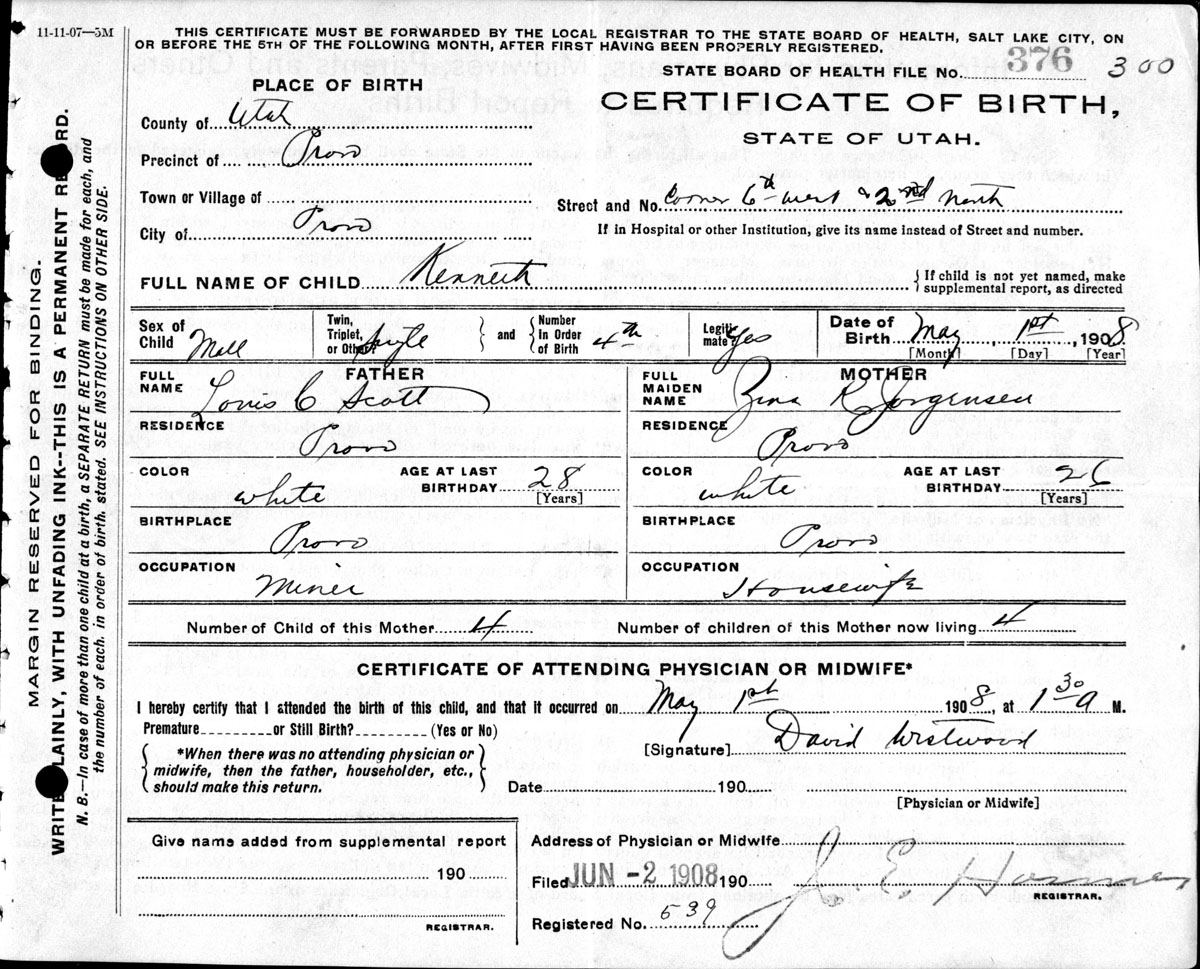 11-11-07—5M
THIS CERTIFICATE MUST BE FORWARDED BY THE LOCAL REGISTRAR TO THE STATE BOARD OF HEALTH, SALT LAKE CITY, ON
OR BEFORE THE 5TH OF THE FOLLOWING MONTH, AFTER FIRST HAVING BEEN PROPERLY REGISTERED.
STATE BOARD OF HEALTH FILE No. 376 300
PLACE OF BIRTH
CERTIFICATE OF BIRTH,
STATE OF UTAH.
County of Utah
Precinct of Provo
Town or Village of
Street and No. Corner 6th West & 2nd North
City of Provo
If in Hospital or other Institution, give its name instead of Street and number.
FULL NAME OF CHILD Kenneth
{If child is not yet named, make
supplemental report, as directed
Sex of Child Mall Twin, Triplet, or Other? Single } and { Number in Order of Birth 4th Legiti- mate? Yes Date of Birth May 1st, 1908
[Month] [Day] [Year]
FATHER
FULL NAME Louis C Scott
RESIDENCE Provo
COLOR white AGE AT LAST BIRTHDAY 28
[Years]
BIRTHPLACE Provo
OCCUPATION Miner
MOTHER
FULL MAIDEN NAME Zina R Jorgensen
RESIDENCE Provo
COLOR white AGE AT LAST BIRTHDAY 26
[Years]
BIRTHPLACE Provo
OCCUPATION Housewife
Number of Child of this Mother 4 Number of children of this Mother now living 4
CERTIFICATE OF ATTENDING PHYSICIAN OR MIDWIFE*
I hereby certify that I attended the birth of this child, and that it occurred on May 1st 1908, at 1 30 a M.
Premature or Still Birth? (Yes or No)
[Signature] David Westwood
{*When there was no attending physician or
midwife, then the father, householder, etc.,
should make this return.}
Date 190
[Physician or Midwife]
Give name added from supplemental report
190
REGISTRAR.
Address of Physician or Midwife
Filed JUN -2 1908 190 J. E.
REGISTRAR.
Registered No. 539
MARGIN RESERVED FOR BINDING.
WRITE LAINLY, WITH UNFADING INK--THIS IS A PERMANENT RE ORD.
N. B.—In case of more than one child at a birth, a SEPARATE RETURN must be made for each, and
the number of each, in order of birth, stated. SEE INSTRUCTIONS ON OTHER SIDE.